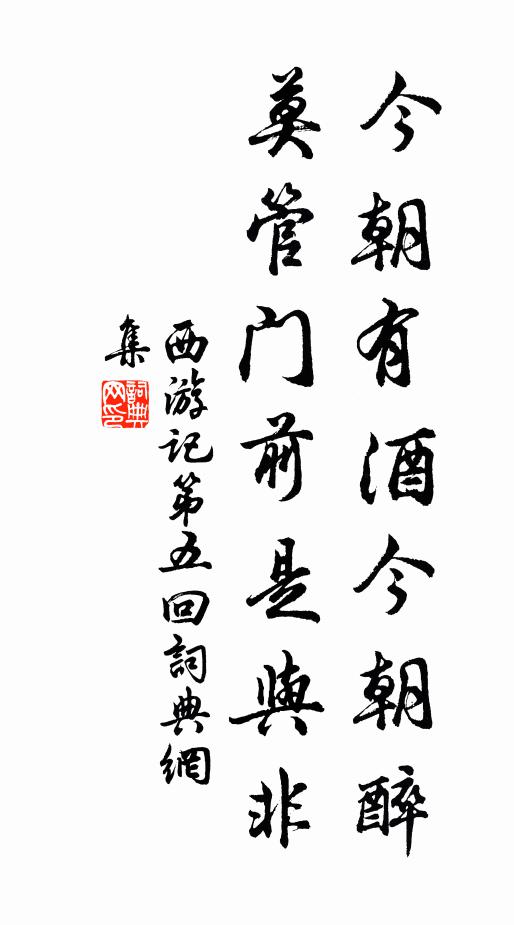 今朝有酒今朝醉
莫管门前是與非
西游记第五回詞典網
集
詞典网印